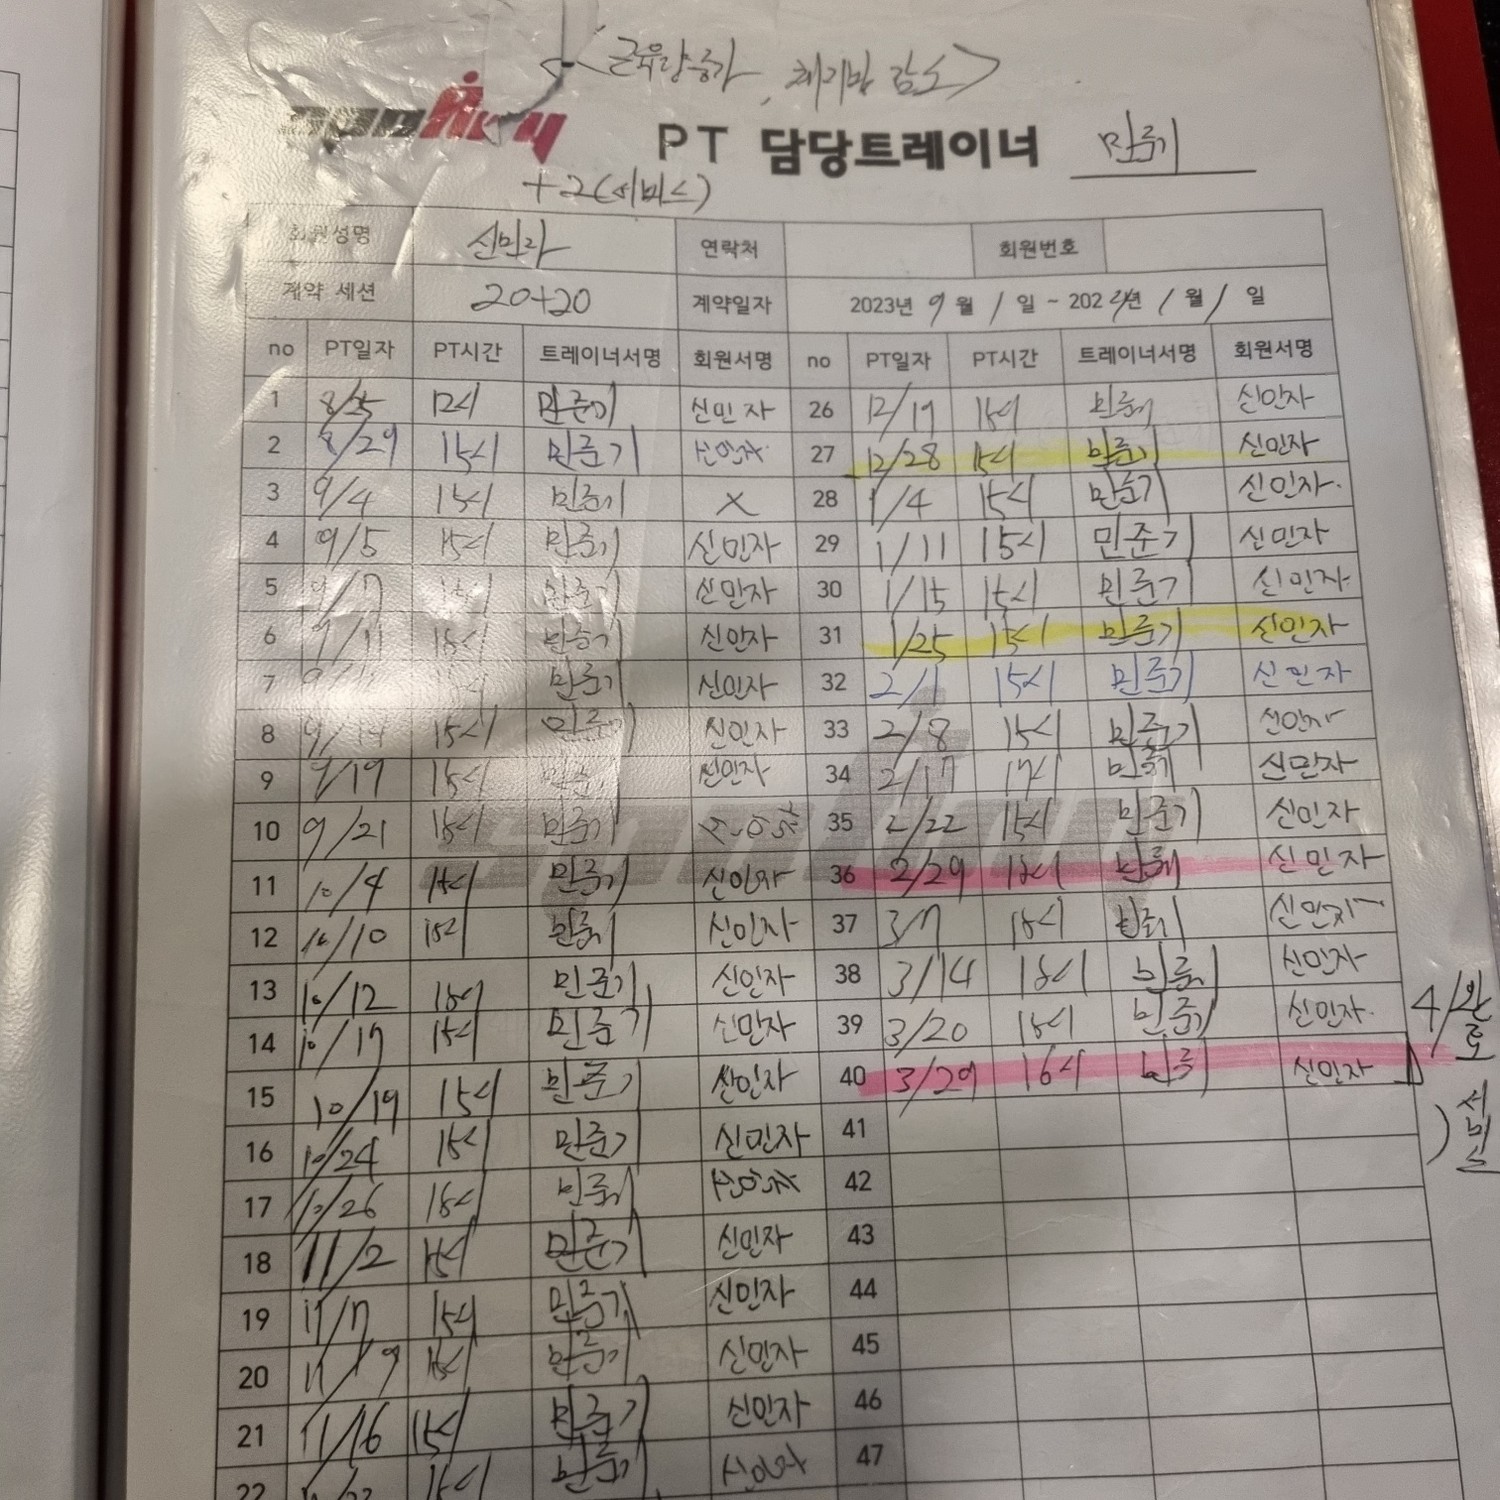 <근육량증가, 체지방 감소>
PT 담당트레이너 민준기
+2(서비스)
회원성명 신민자 연락처 회원번호
계약 세션 20+20 계약일자 2023년 9월 1일 ~ 2024년 1월 1일
no PT일자 PT시간 트레이너서명 회원서명 no PT일자 PT시간 트레이너서명 회원서명
1 8/25 12시 민준기 신민자 26 12/19 15시 민준기 신민자
2 8/29 15시 민준기 신민자 27 12/28 15시 민준기 신민자
3 9/4 15시 민준기 X 28 1/4 15시 민준기 신민자
4 9/5 15시 민준기 신민자 29 1/11 15시 민준기 신민자
5 9/7 15시 민준기 신민자 30 1/15 15시 민준기 신민자
6 9/11 15시 민준기 신민자 31 1/25 15시 민준기 신민자
7 민준기 신민자 32 2/1 15시 민준기 신민자
8 9/14 15시 민준기 신민자 33 2/8 15시 민준기 신민자
9 9/19 15시 민준기 신민자 34 2/17 17시 민준기 신민자
10 9/21 15시 민준기 35 2/22 15시 민준기 신민자
11 10/4 15시 민준기 신민자 36 2/29 16시 민준기 신민자
12 10/10 15시 민준기 신민자 37 3/7 16시 민준기 신민자
13 10/12 15시 민준기 신민자 38 3/14 16시 민준기 신민자
14 10/17 15시 민준기 신민자 39 3/20 16시 민준기 신민자
15 10/19 15시 민준기 신민자 40 3/29 16시 민준기 신민자
4/ 완료
서비스
16 10/24 15시 민준기 신민자 41
17 10/26 15시 민준기 신민자 42
18 11/2 15시 민준기 신민자 43
19 11/7 15시 민준기 신민자 44
20 11/9 15시 민준기 신민자 45
21 11/16 15시 민준기 신민자 46
22 15시 민준기 신민자 47